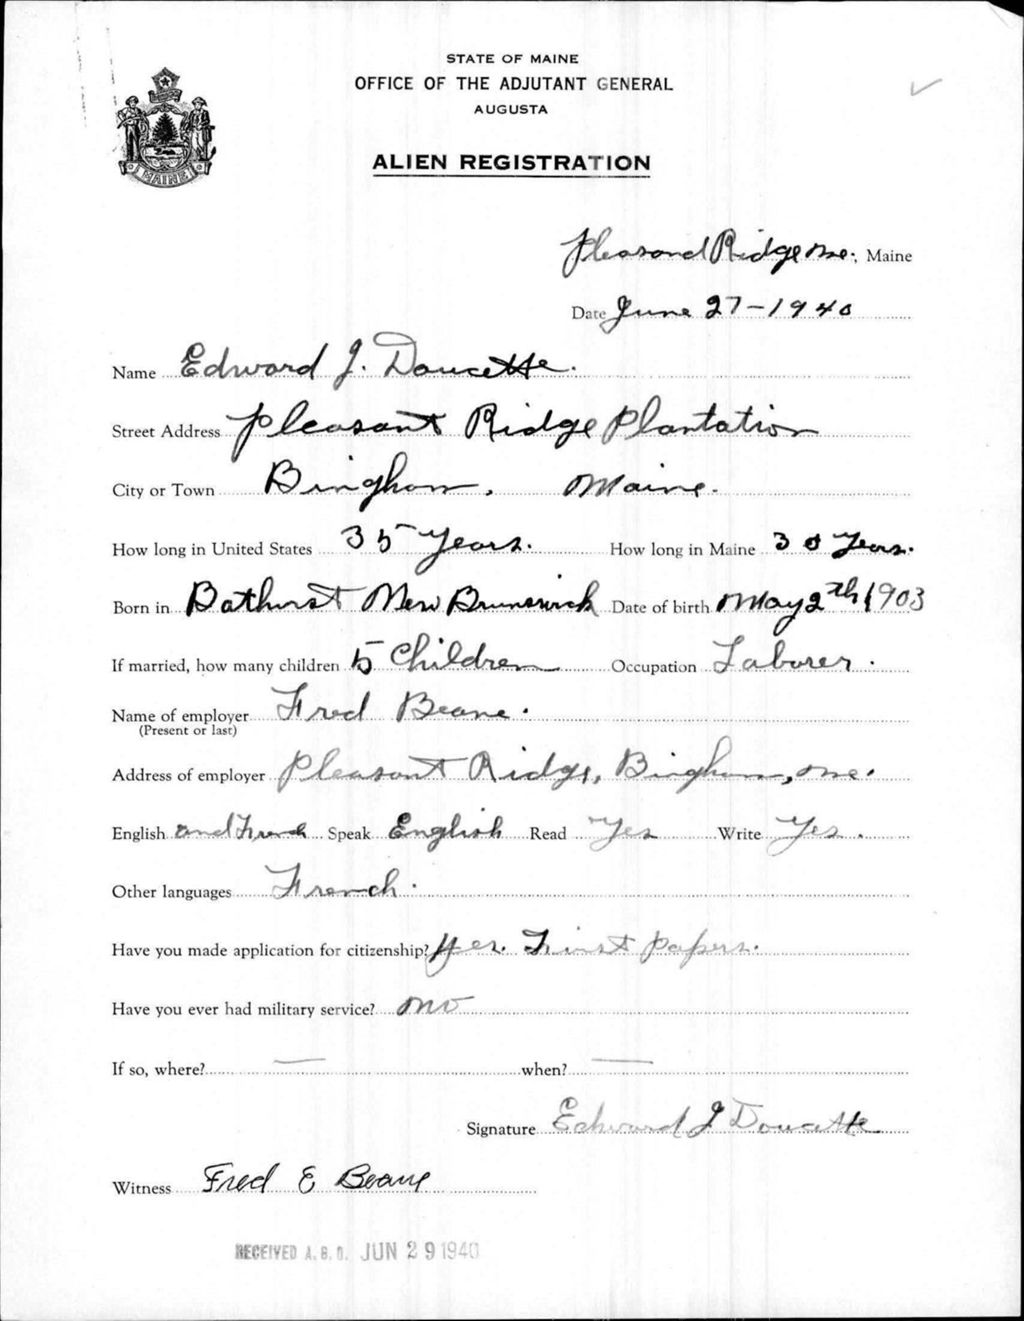 STATE OF MAINE
OFFICE OF THE ADJUTANT GENERAL
AUGUSTA
ALIEN REGISTRATION
MAINE
Pleasand Ridge Me., Maine
Date June 27-1940
Name Edward J. Doucette.
Street Address Pleasant Ridge Plantation
City or Town Bingham, Maine.
How long in United States 35 Years. How long in Maine 30 Years.
Born in Bathurst New Brunswick Date of birth May 2th 1903
If married, how many children 5 Children Occupation Laborer.
Name of employer Fred Beane.
(Present or last)
Address of employer Pleasant Ridge, Bingham, Me.
English and French Speak English Read Yes Write Yes.
Other languages French.
Have you made application for citizenship? Yes. Firist papers.
Have you ever had military service? No
If so, where? — when? —
Signature Edward J Doucette
Witness Fred E Beane
RECEIVED A.G.O. JUN 29 1940